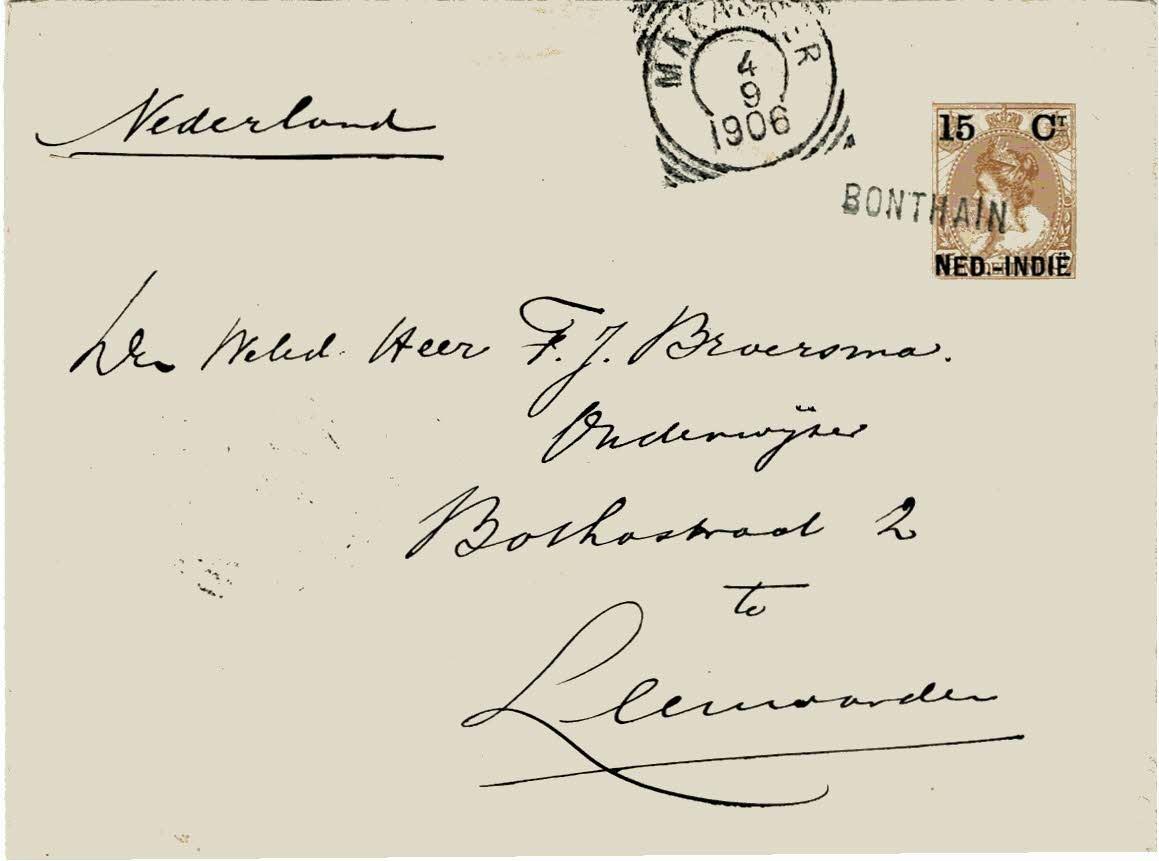 MAKASSER
4
9
1906
Nederland
15 CT
BONTHAIN
NED.-INDIË
Den Weled. Heer F. J. Broersma.
Onderwijzer
Bothastraat 2
te
Leeuwarden